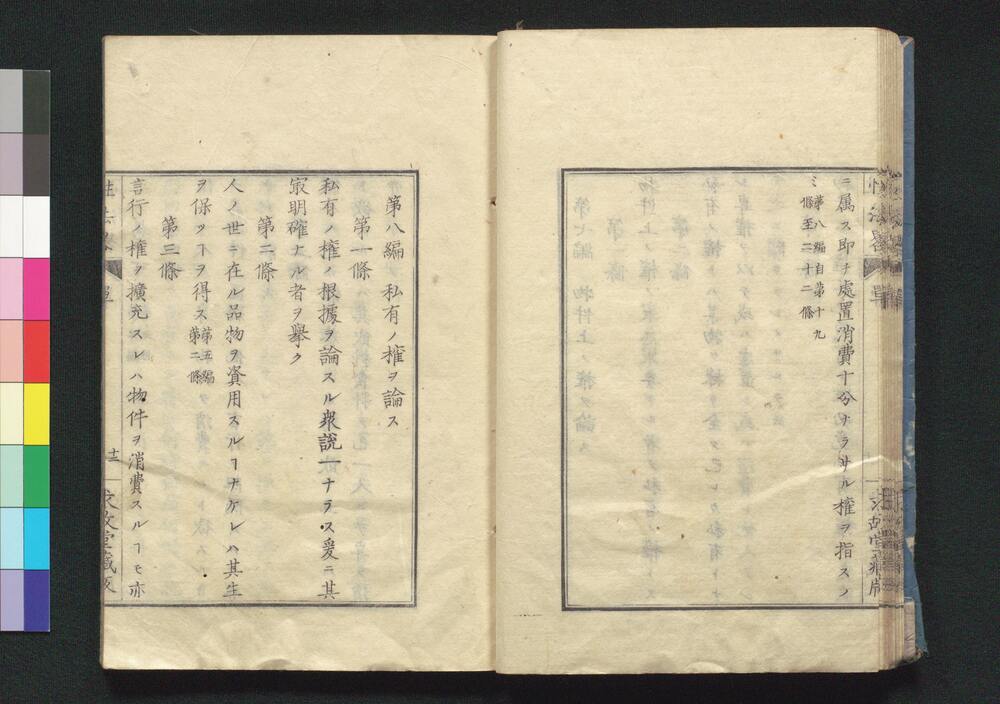 ニ属ス即チ處置消費十分ナラサル權ヲ指スノ
ミ第八編自第十九
條至二十二條
第八編 私有ノ權ヲ論ス
第一條
私有ノ權ノ根據ヲ論スル衆說一ナラス爰ニ其
㝡明確ナル者ヲ擧ク
第二條
人ノ世ニ在ル品物ヲ資用スルヿナケレハ其生
ヲ保ツヿヲ得ス第五編
第二條
第三條
言行ノ權ヲ擴充スレハ物件ヲ消費スルヿモ亦
十二